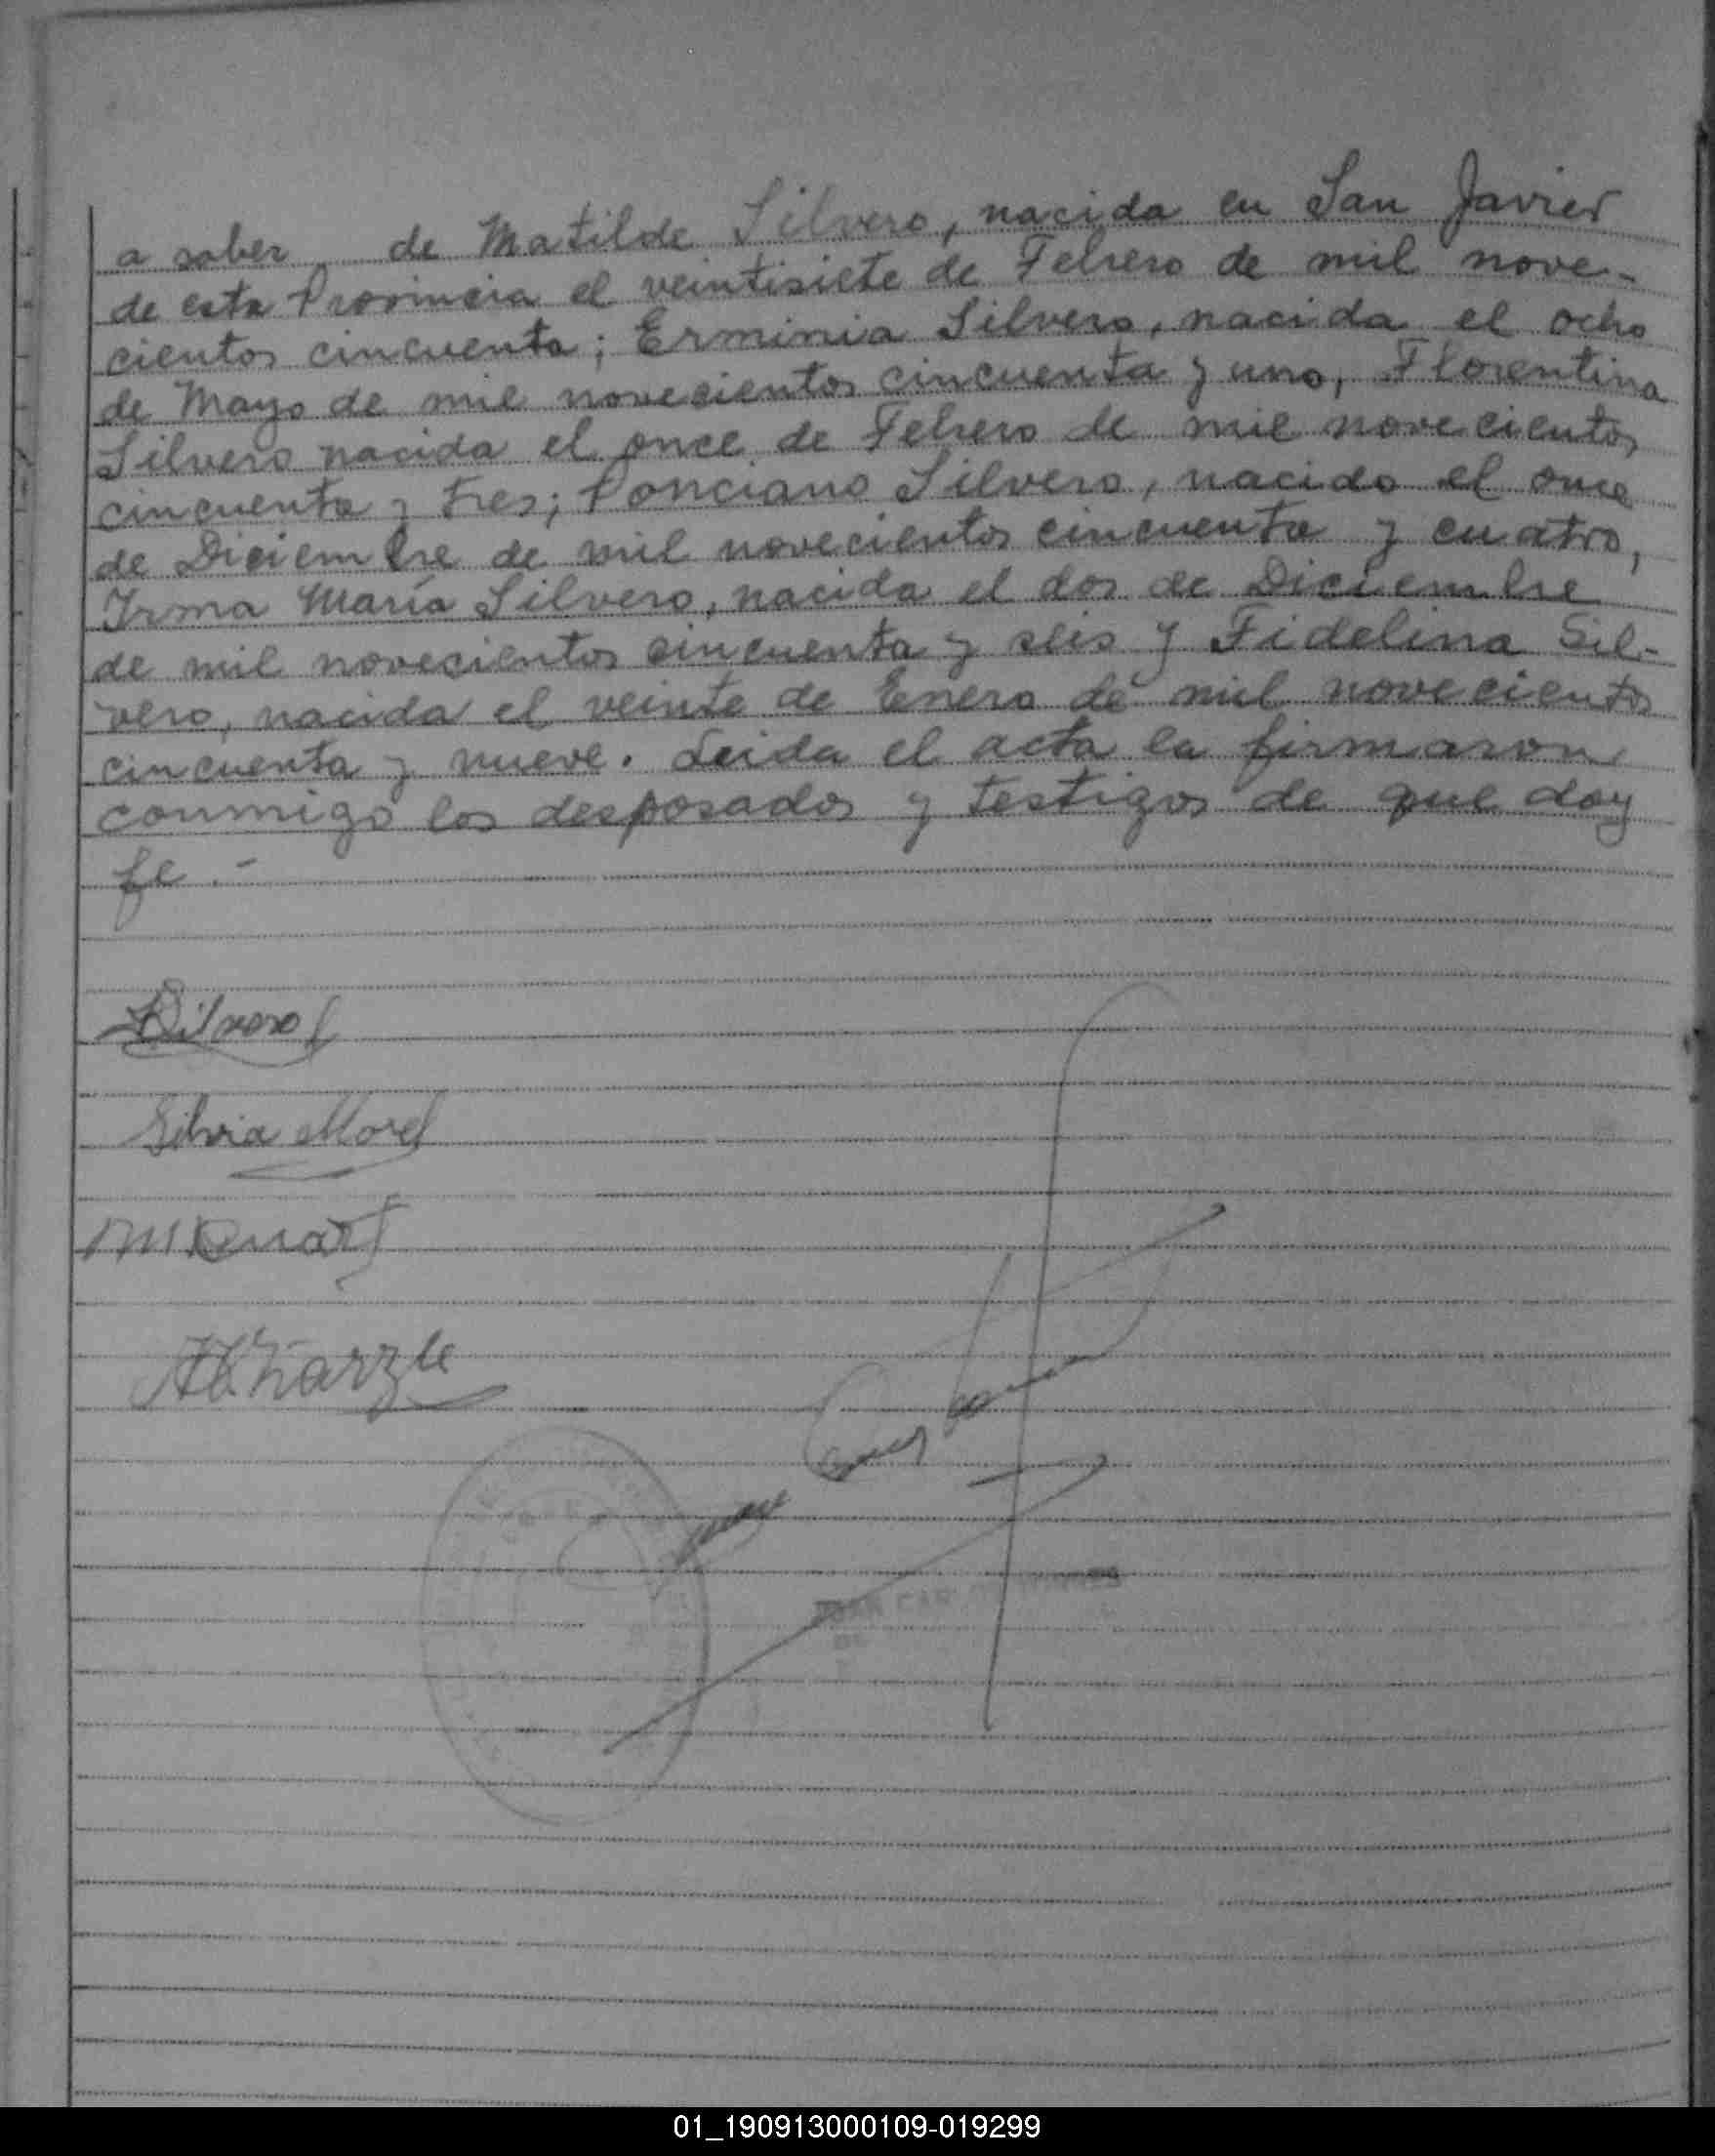 a saber de Matilde Silvero, nacida en San Javier
de esta Provincia el veintisiete de Febrero de mil nove-
cientos cincuenta; Erminia Silvero, nacida el ocho
de Mayo de mil novecientos cincuenta y uno, Florentina
Silvero nacida el once de Febrero de mil novecientos
cincuenta y tres; Ponciano Silvero, nacido el once
de Diciembre de mil novecientos cincuenta y cuatro,
Irma María Silvero, nacida el dos de Diciembre
de mil novecientos cincuenta y seis y Fidelina Sil-
vero, nacida el veinte de Enero de mil novecientos
cincuenta y nueve. Leida el acta la firmaron
conmigo los desposados y testigos de que doy
fe -
Silvero
Silvia Morel
JUAN
01_190913000109-019299